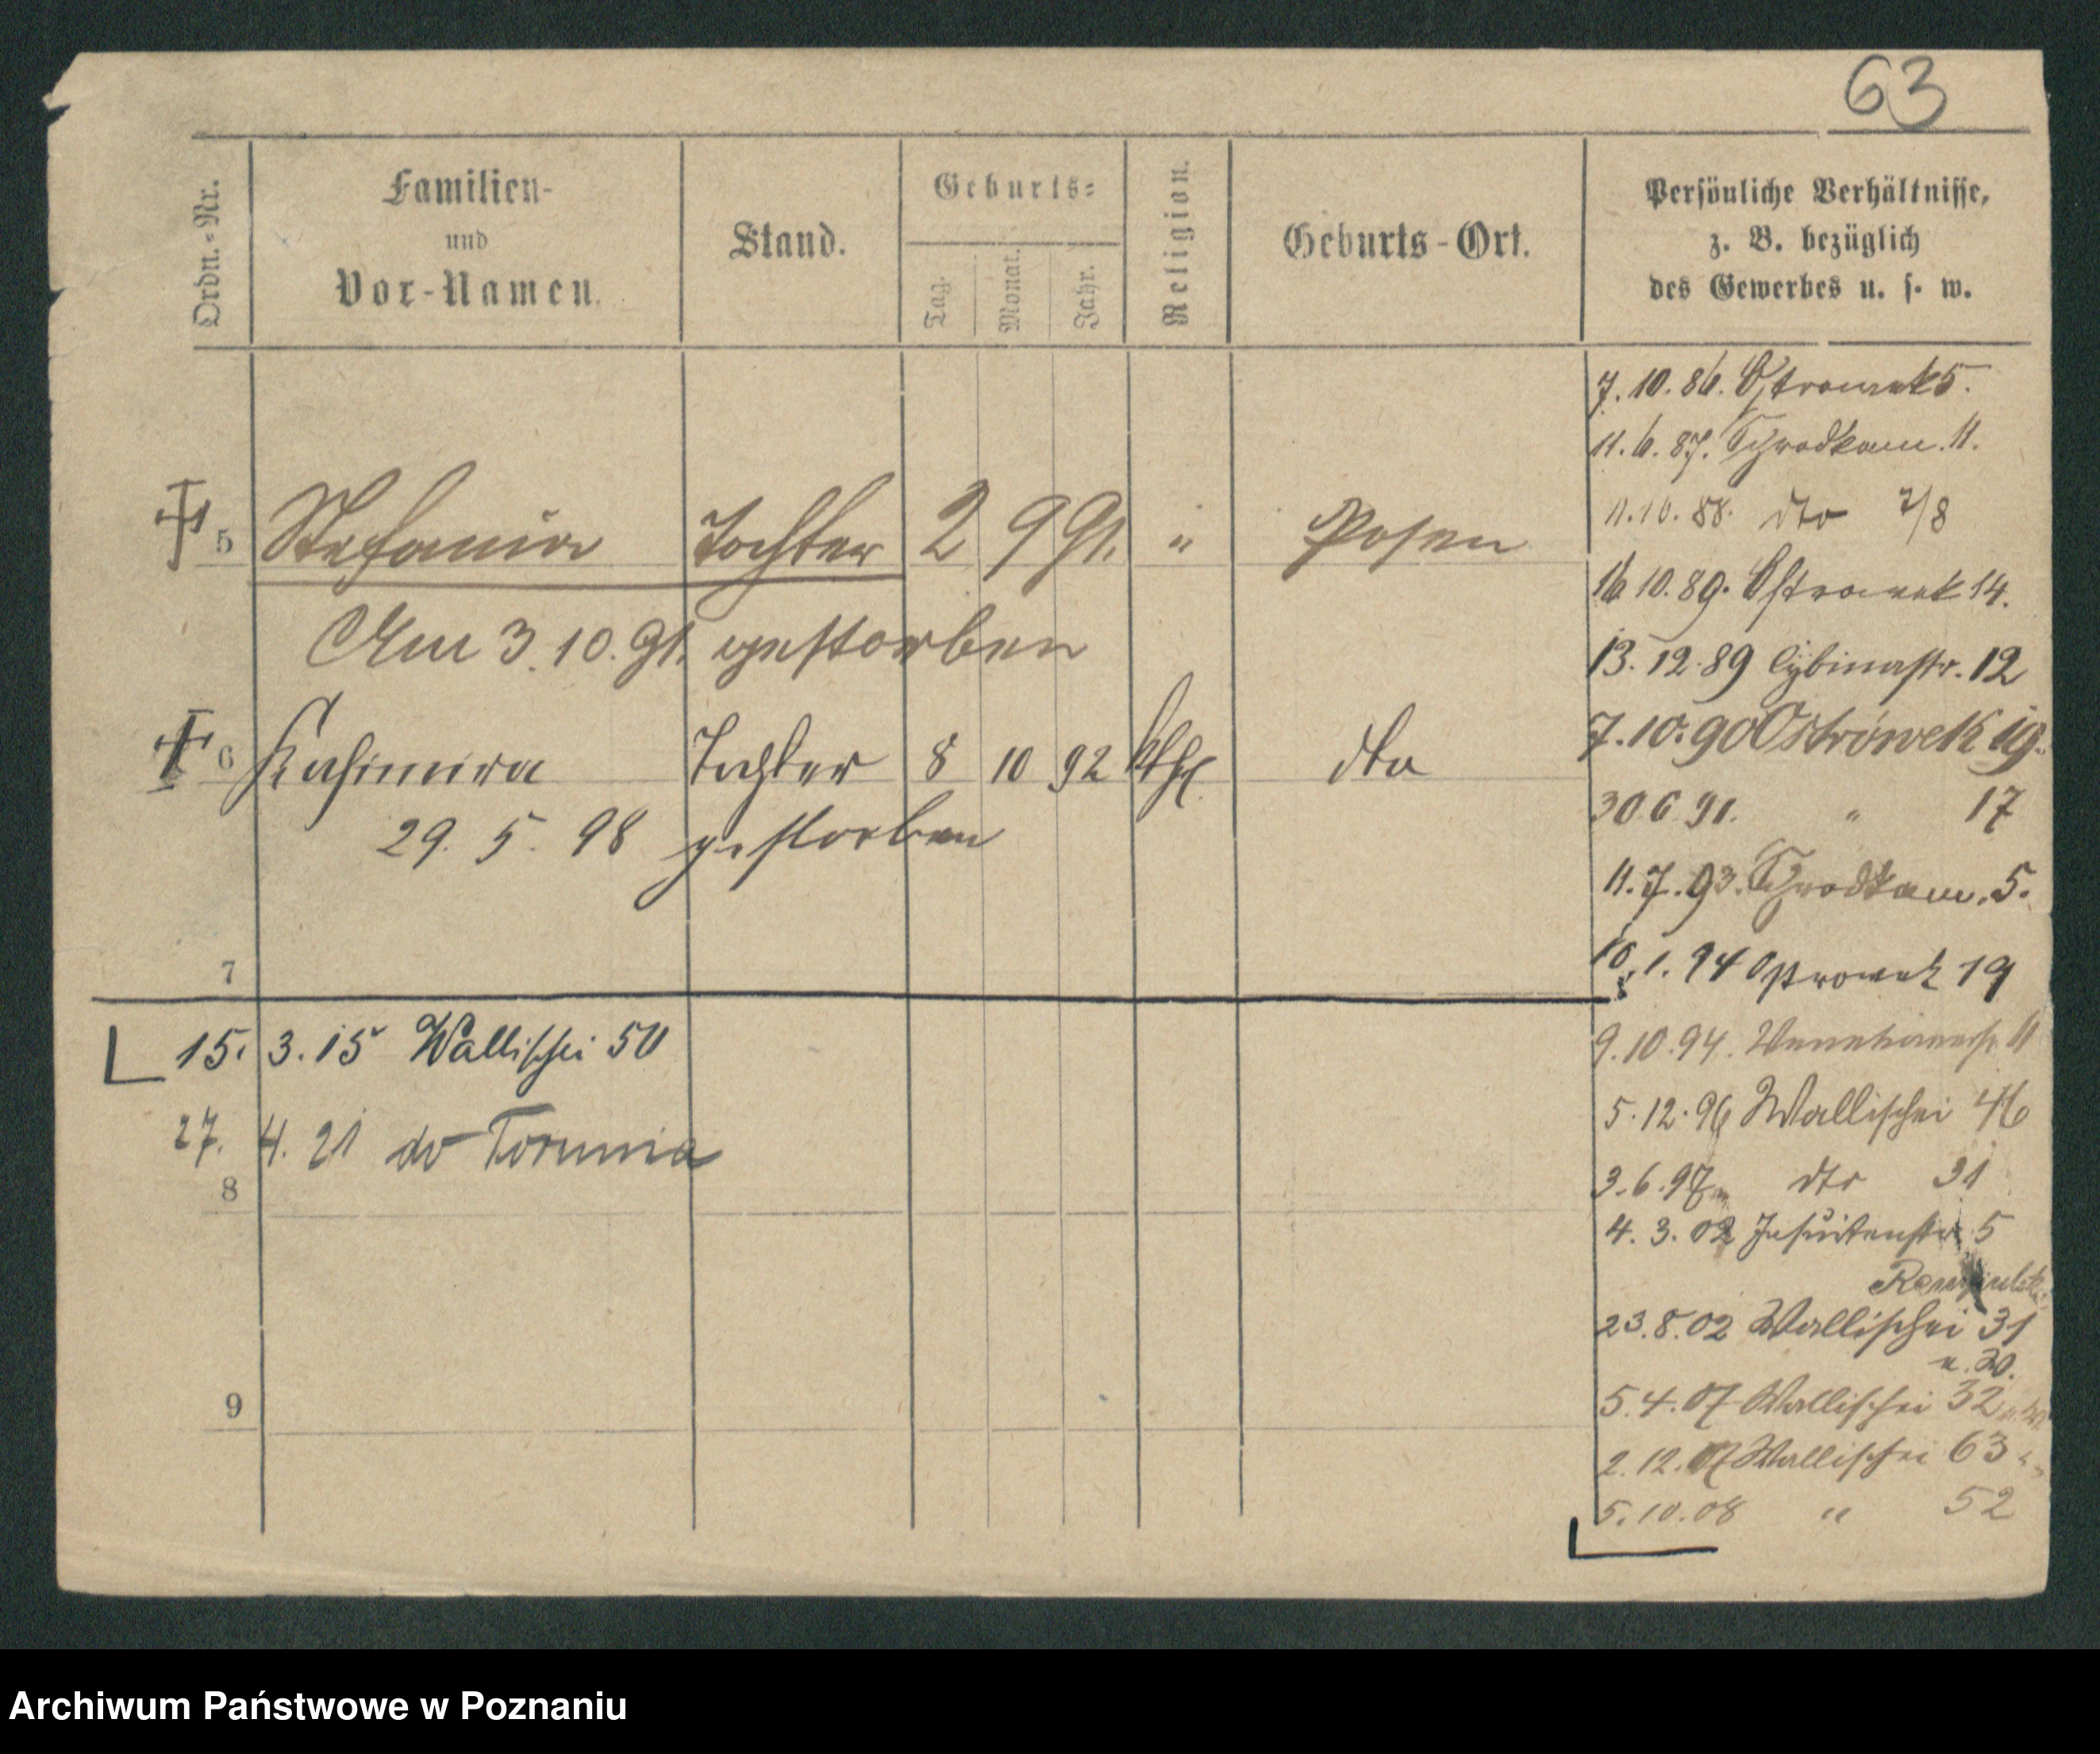 63
Ordn.-Nr.
Familien-
und
Vor-Namen.
Stand.
Geburts-
Tag.
Monat.
Jahr.
Religion.
Geburts-Ort.
Persönliche Verhältnisse,
z. B. bezüglich
des Gewerbes u. s. w.
7.10.86. Ostrowek 5.
11.6.87. Schrodkam. 11.
11.10.88. dto 7/8
5 Stefania Tochter 2 9 91. " Posen
16 10.89. Ostrowek 14.
Am 3.10.91. gestorben
13.12.89 Cybinastr. 12
7.10.90 Ostrówek 19.
6 Kasimira Tochter 8 10 92 kth. dto
30.6.91. " 17
29.5.98 gestorben
11.7.93. Schrodkam. 5.
7
1.94 Ostrowek 19
15. 3.15 Wallischei 50
9.10.94. 11
5.12.96 Wallischei 46
27. 4.21 do Torunia
8
3.6.97 dto 31
4.3.02 Jesuitenstr. 5
23.8.02 Wallischei 31
u. 30.
9
5.4.07 Wallischei 32
2.12.07 Wallischei 63
5.10.08 " 52
Archiwum Państwowe w Poznaniu